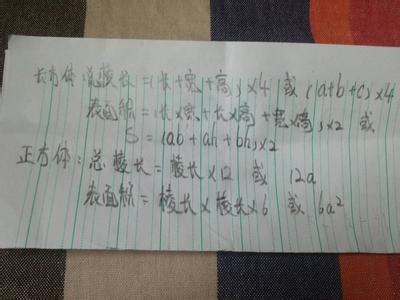 长方体:总棱长=(长+宽+高)×4 或 (a+b+c)×4
表面积=(长×宽+长×高+宽×高)×2 或
S=(ab+ah+bh)×2
正方体:总棱长=棱长×12 或 12a
表面积=棱长×棱长×6 或 6a²